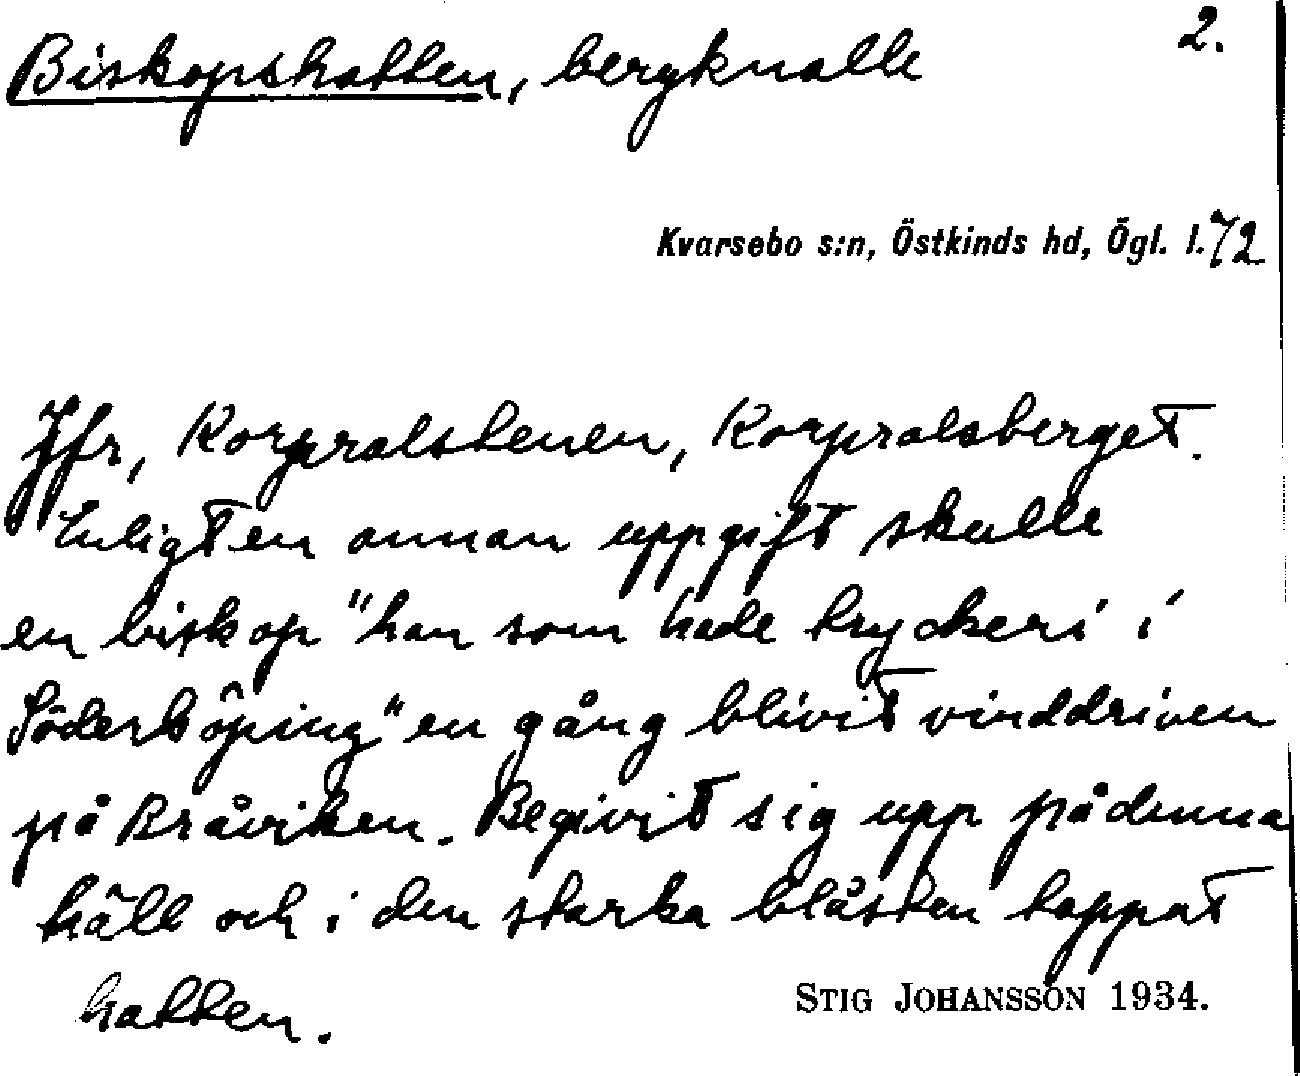 2.
Biskopshatten, bergknalle
Kvarsebo s:n, Östkinds hd, Ögl. l. 72
Jfr, Korpralstenen, Korpralsberget.
Enligt en annan uppgift skulle
en biskop "han som hade tryckeri i
Söderköping" en gång blivit vinddriven
på Bråviken. Begivit sig upp på denna
häll och i den starka blåsten tappat
hatten.
STIG JOHANSSON 1934.